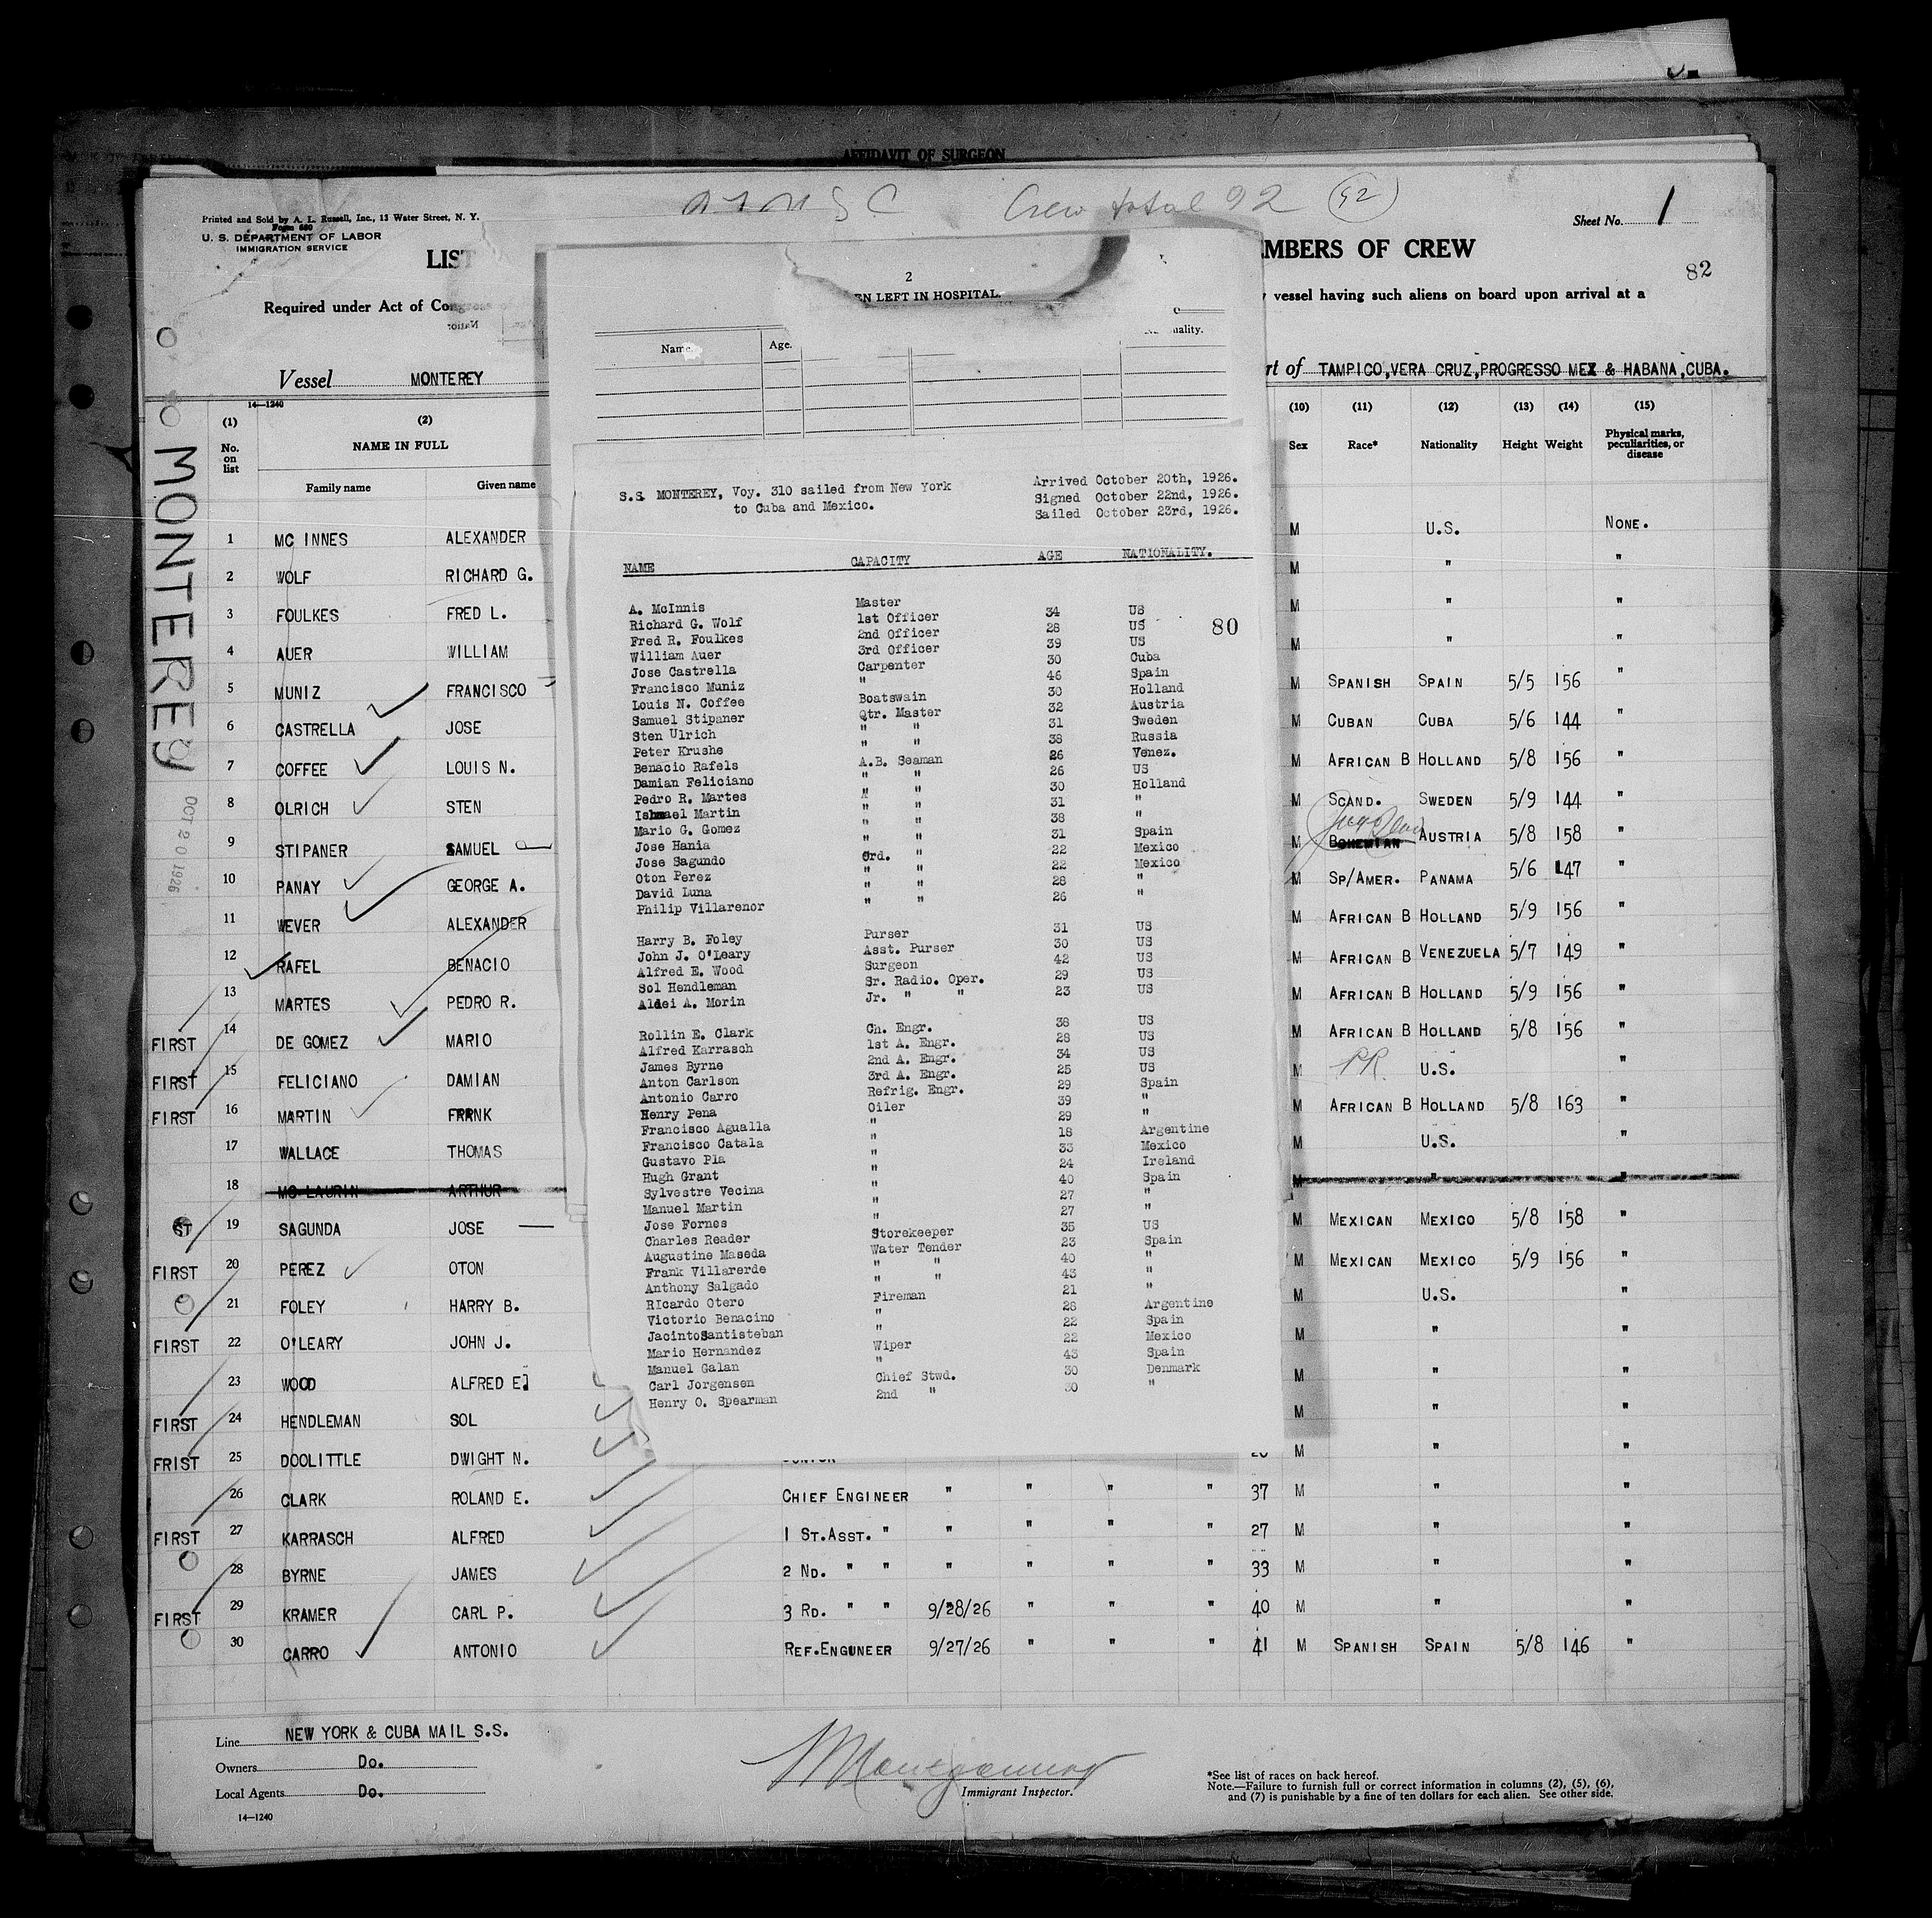 AFFIDAVIT OF SURGEON
Crew total 92 (92)
Printed and Sold by A. L. Russell, Inc., 13 Water Street, N. Y.
Form 680
U. S. DEPARTMENT OF LABOR
IMMIGRATION SERVICE
Sheet No. 1
LIST
EMBERS OF CREW
82
Required under Act of Congress
vessel having such aliens on board upon arrival at a
Vessel MONTEREY
rt of TAMPICO, VERA CRUZ, PROGRESSO MEX & HABANA, CUBA.
14—1240
(1) (2) (10) (11) (12) (13) (14) (15)
No. on list NAME IN FULL Sex Race* Nationality Height Weight Physical marks, peculiarities, or disease
Family name Given name
MONTEREY
OCT 20 1926
1 MC INNES ALEXANDER M U.S. NONE.
2 WOLF RICHARD G. M " "
3 FOULKES FRED L. M " "
4 AUER WILLIAM M " "
5 MUNIZ FRANCISCO M SPANISH SPAIN 5/5 156 "
6 CASTRELLA JOSE M CUBAN CUBA 5/6 144 "
7 COFFEE LOUIS N. M AFRICAN B HOLLAND 5/8 156 "
8 OLRICH STEN M SCAND. SWEDEN 5/9 144 "
9 STIPANER SAMUEL M BOHEMIAN AUSTRIA 5/8 158 "
10 PANAY GEORGE A. M SP/AMER. PANAMA 5/6 147 "
11 WEVER ALEXANDER M AFRICAN B HOLLAND 5/9 156 "
12 RAFEL BENACIO M AFRICAN B VENEZUELA 5/7 149 "
13 MARTES PEDRO R. M AFRICAN B HOLLAND 5/9 156 "
FIRST 14 DE GOMEZ MARIO M AFRICAN B HOLLAND 5/8 156 "
FIRST 15 FELICIANO DAMIAN M PR. U.S. "
FIRST 16 MARTIN FRANK M AFRICAN B HOLLAND 5/8 163 "
17 WALLACE THOMAS M U.S. "
18 MC LAURIN ARTHUR M " "
ST 19 SAGUNDA JOSE M MEXICAN MEXICO 5/8 158 "
FIRST 20 PEREZ OTON M MEXICAN MEXICO 5/9 156 "
21 FOLEY HARRY B. M U.S. "
FIRST 22 O'LEARY JOHN J. M " "
23 WOOD ALFRED E. M " "
FIRST 24 HENDLEMAN SOL M " "
FRIST 25 DOOLITTLE DWIGHT N. M " "
26 CLARK ROLAND E. CHIEF ENGINEER " " " " 37 M " "
FIRST 27 KARRASCH ALFRED 1 ST.ASST. " " " " " 27 M " "
28 BYRNE JAMES 2 ND. " " " " " " 33 M " "
FIRST 29 KRAMER CARL P. 3 RD. " " 9/28/26 " " " 40 M " "
30 CARRO ANTONIO REF.ENGUNEER 9/27/26 " " " 41 M SPANISH SPAIN 5/8 146 "
Line NEW YORK & CUBA MAIL S.S.
Owners Do.
Local Agents Do.
14—1240
Montgomery
Immigrant Inspector.
*See list of races on back hereof.
Note.—Failure to furnish full or correct information in columns (2), (5), (6),
and (7) is punishable by a fine of ten dollars for each alien. See other side.
2
EN LEFT IN HOSPITAL.
Name Age. nality.
S.S. MONTEREY, Voy. 310 sailed from New York
to Cuba and Mexico.
Arrived October 20th, 1926.
Signed October 22nd, 1926.
Sailed October 23rd, 1926.
NAME CAPACITY AGE NATIONALITY.
80
A. McInnis Master
Richard G. Wolf 1st Officer 34 US
Fred R. Foulkes 2nd Officer 28 US
William Auer 3rd Officer 39 US
Jose Castrella Carpenter 30 Cuba
Francisco Muniz " 46 Spain
Louis N. Coffee Boatswain 30 Holland
Samuel Stipaner Qtr. Master 32 Austria
Sten Ulrich " " 31 Sweden
Peter Krushe " " 38 Russia
Benacio Rafels A.B. Seaman 26 Venez.
Damian Feliciano " " 26 US
Pedro R. Martes " " 30 Holland
Ishmael Martin " " 31 "
Mario G. Gomez " " 38 "
Jose Hania " " 31 Spain
Jose Sagundo Ord. " 22 Mexico
Oton Perez " " 22 Mexico
David Luna " " 28 "
Philip Villarenor " " 26 "
Harry B. Foley Purser 31 US
John J. O'Leary Asst. Purser 30 US
Alfred E. Wood Surgeon 42 US
Sol Hendleman Sr. Radio. Oper. 29 US
Aldei A. Morin Jr. " " 23 US
Rollin E. Clark Ch. Engr. 38 US
Alfred Karrasch 1st A. Engr. 28 US
James Byrne 2nd A. Engr. 34 US
Anton Carlson 3rd A. Engr. 25 US
Antonio Carro Refrig. Engr. 29 Spain
Henry Pena Oiler 39 "
Francisco Agualla " 29 "
Francisco Catala " 18 Argentine
Gustavo Pla " 33 Mexico
Hugh Grant " 24 Ireland
Sylvestre Vecina " 40 Spain
Manuel Martin " 27 "
Jose Fornes " 27 "
Charles Reader Storekeeper 35 US
Augustine Maseda Water Tender 23 Spain
Frank Villarerde " " 40 "
Anthony Salgado " " 43 "
RIcardo Otero Fireman 21 "
Victorio Benacino " 28 Argentine
JacintoSantisteban " 22 Spain
Mario Hernandez Wiper 22 Mexico
Manuel Galan " 43 Spain
Carl Jorgensen Chief Stwd. 30 Denmark
Henry O. Spearman 2nd " 30 "